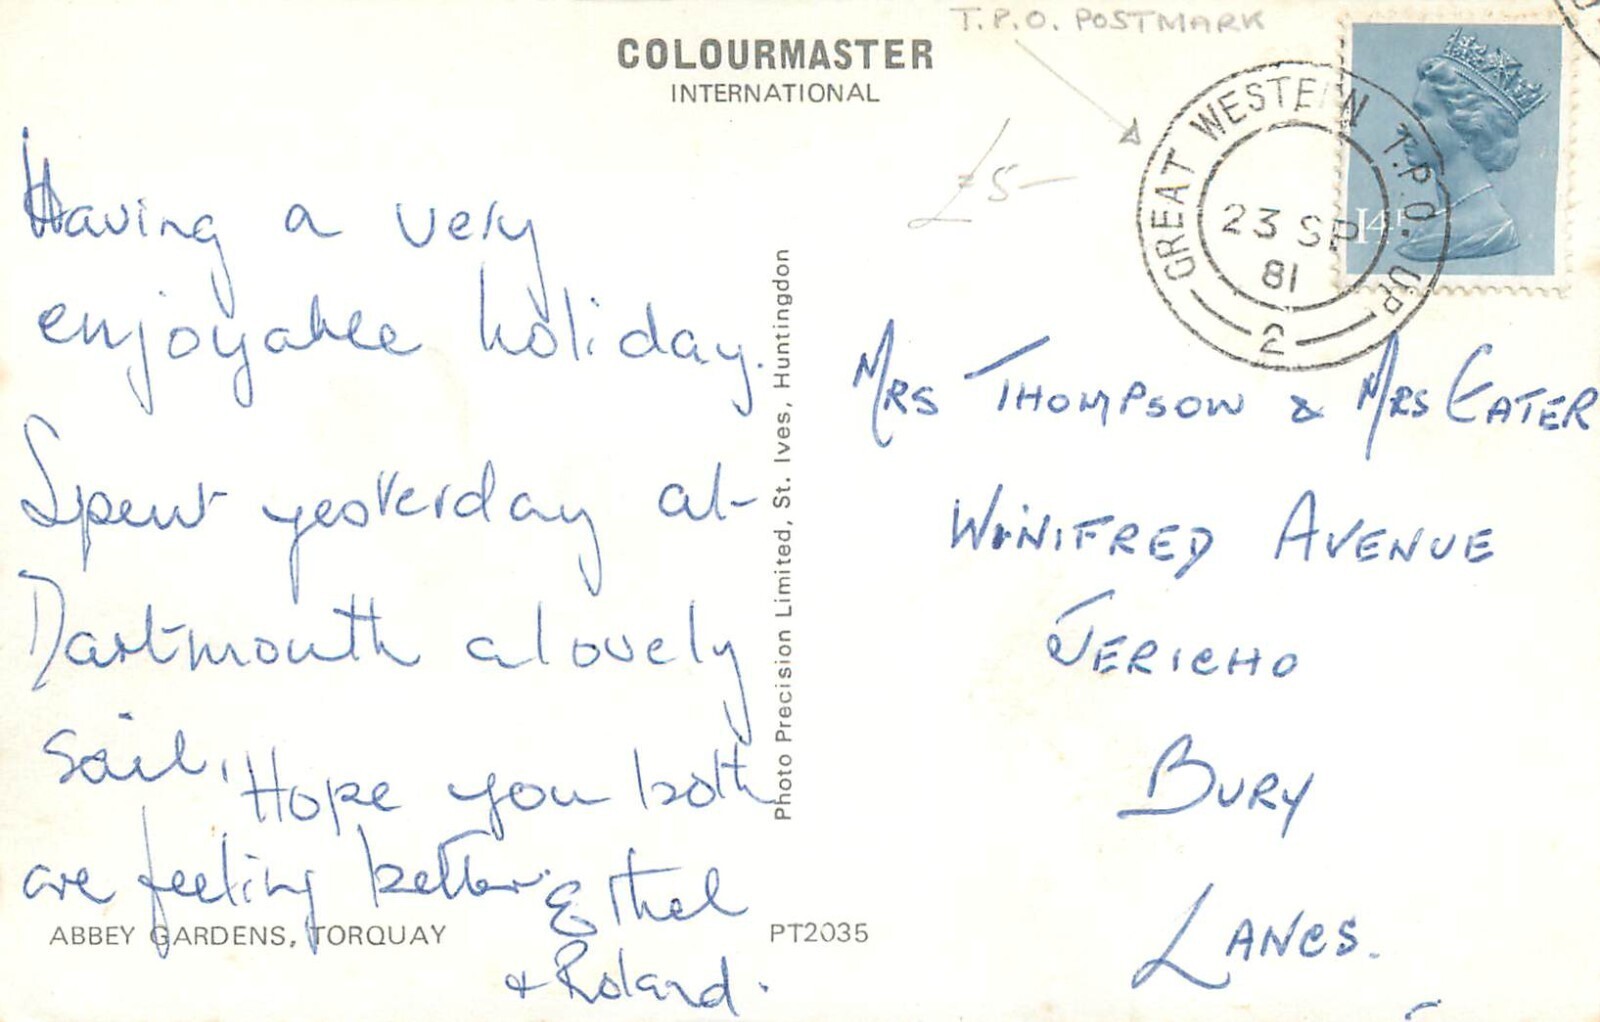 T.P.O. POSTMARK
COLOURMASTER
INTERNATIONAL
£5-
GREAT WESTERN T.P.O. UP
23 SP
81
2
14P
Having a very
enjoyable holiday.
Spent yesterday at
Dartmouth a lovely
sail, Hope you both
are feeling better.
Ethel
& Roland.
ABBEY GARDENS, TORQUAY
PT2035
Photo Precision Limited, St. Ives, Huntingdon
MRS THOMPSON & MRS EATER
WINIFRED AVENUE
JERICHO
BURY
LANCS.